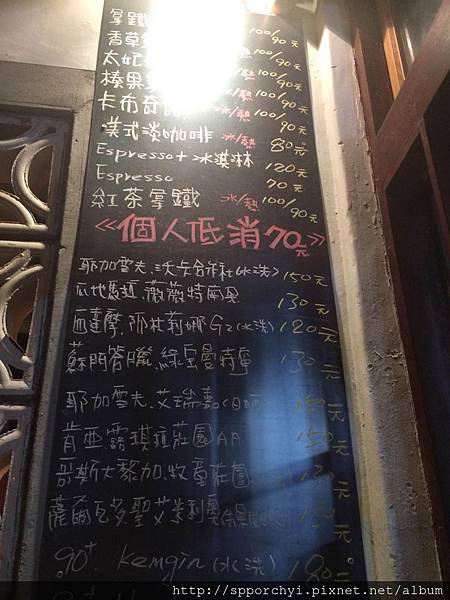 拿鐵
香草 100/90元
太妃 冰/熱 100/90元
榛果 冰/熱 100/90元
卡布奇 冰/熱 100/90元
美式淡咖啡 冰/熱 80元
Espresso+冰淇林 120元
Espresso 70元
紅茶拿鐵 冰/熱 100/90元
《個人低消70元》
耶加雪夫.沃卡合作社(水洗) 150元
瓜地馬拉.薇薇特南果 130元
薩摩.阿杜莉娜G2(水洗) 120元
蘇門答臘.綠寶曼特寧 130元
耶加雪夫.艾瑞嘉(日晒) 元
肯亞露琪拉莊園AA 150元
哥斯大黎加.牧童莊園 元
薩爾瓦多聖艾米利奧 元
90+ kemgin(水洗) 180元
http://spporchyi.pixnet.net/album